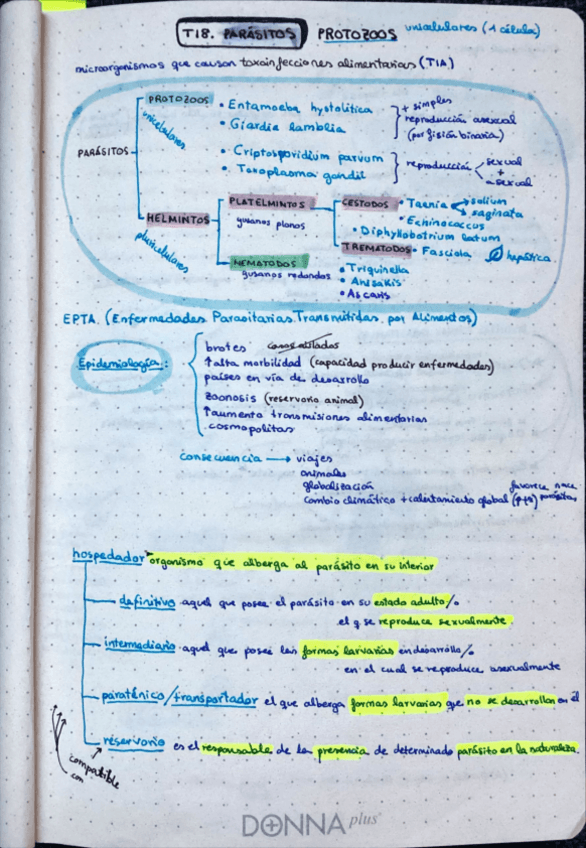 T18. PARÁSITOS PROTOZOOS unicelulares (1 célula)
microorganismos que causan toxoinfecciones alimentarias (TIA)
PARÁSITOS
PROTOZOOS
unicelulares
• Entamoeba hystolitica
• Giardia lamblia
+ simples
reproducción asexual
(por fisión binaria)
• Criptosporidium parvum
• Toxoplasma gondii
reproducción sexual
+
asexual
HELMINTOS
pluricelulares
PLATELMINTOS
gusanos planos
CESTODOS • Taenia solium
saginata
• Echinococcus
• Diphyllobotrium latum
TREMATODOS • Fasciola hepática
NEMATODOS
gusanos redondos
• Triquinella
• Anisakis
• Ascaris
EPTA. (Enfermedades Parasitarias Transmitidas por Alimentos)
Epidemiología:
brotes
↑alta morbilidad (capacidad producir enfermedades)
países en vía de desarrollo
zoonosis (reservorio animal)
↑aumento transmisiones alimentarias
cosmopolitas
consecuencia → viajes
animales
globalización
cambio climático + calentamiento global
favorece
parásitos
hospedador organismo que alberga al parásito en su interior
definitivo aquel que posee el parásito en su estado adulto/o
el q se reproduce sexualmente.
intermediario aquel que posee las formas larvarias en desarrollo/o
en el cual se reproduce asexualmente
paraténico/transportador el que alberga formas larvarias que no se desarrollan en él
reservorio es el responsable de la presencia de determinado parásito en la naturaleza.
compatible
con
DONNA plus